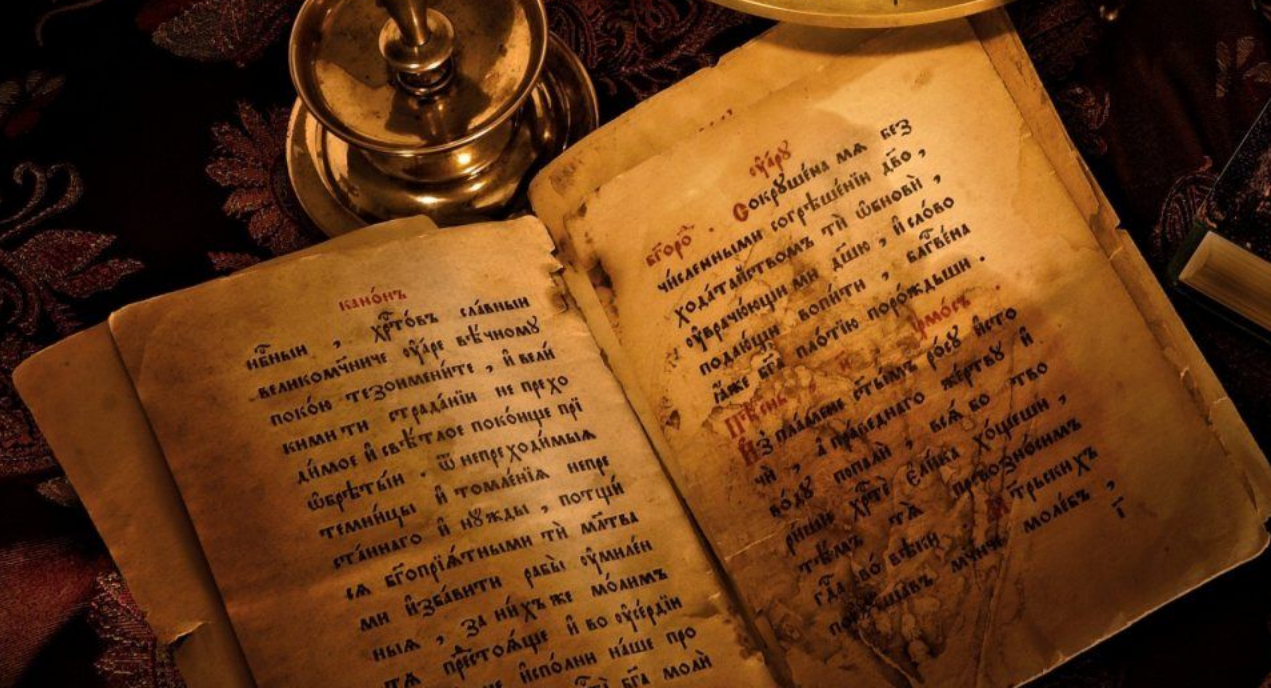 канѡ́нъ
нб҃ный , хрⷭ҇то́въ сла́вный
великомч҃ниче оу҆а́ре вѣ́чномꙋ
поко́ю тезоимени́те , и҆ вели́
кими ти страда́нїи не прехо
ди́мое и҆ свѣ́тлое поко́ище прї
ѡ҆брѣ́тый . ѿ непреходи́мыѧ
темни́цы и҆ томле́нїѧ непре
ста́ннаго и҆ нꙋ́жды , потщи́
сѧ бг҃опрїѧ́тными ти̑ мл҃тва
ми и҆зба́вити рабы̀ оу҆миле́н
ныѧ , за ни́хъ же мо́лимъ
тѧ престоѧ́ще и҆ во оу҆се́рдїи
и҆спо́лни на́ше про
бг҃а моли̑
оу҆а́рꙋ
бг҃оро́ . Сокрꙋше́на мѧ без
чи́сленными согрѣше́нїи дв҃о ,
хода́тайствомъ ти̑ ѡ҆бнови̑ ,
оу҆врачю́ющи ми дш҃ю , и҆ сло́во
пода́ющи вопи́ти , блг҃ве́на
ꙗ҆́же бг҃а пло́тїю поро́ждьши .
Пѣ́снь и҃ І҆рмо́съ .
И҆з пла́мени ст҃ымъ ро́сꙋ и҆сто
чи̑ , а҆ пра́веднаго же́ртвꙋ и҆
во́дꙋ попали̑ , всѧ̀ бо тво
риши хрⷭ҇тѐ є҆ли́ка хо́щеши ,
тѧ̀ превозно́симъ
во̀ вѣ́ки
моле́бъ ,